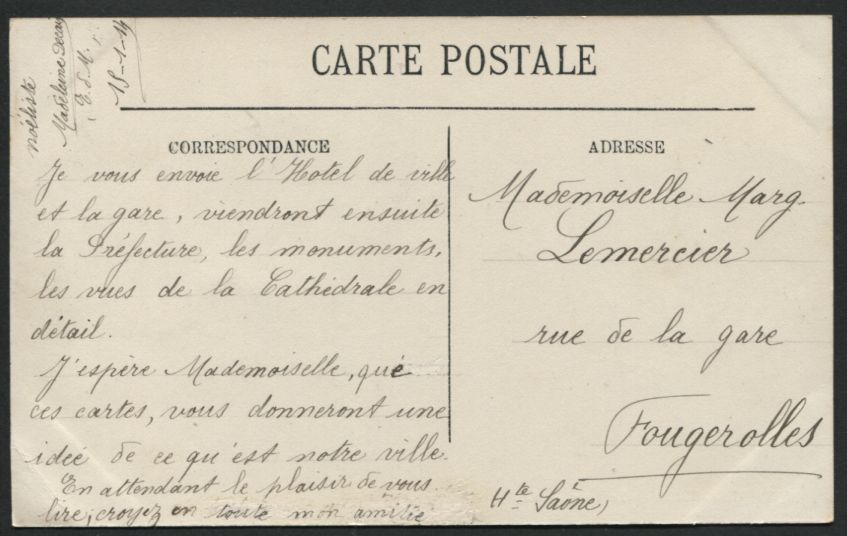 CARTE POSTALE
CORRESPONDANCE
Je vous envoie l'Hotel de ville
et la gare, viendront ensuite
la Préfecture, les monuments,
les vues de la Cathédrale en
détail.
J'espère Mademoiselle, que
ces cartes, vous donneront une
idée de ce qu'est notre ville.
En attendant le plaisir de vous
lire, croyez en toute mon amitié
noëliste
Madelaine
E. d. M.
15-1-14
ADRESSE
Mademoiselle Marg.
Lemercier
rue de la gare
Fougerolles
Hte Saône,